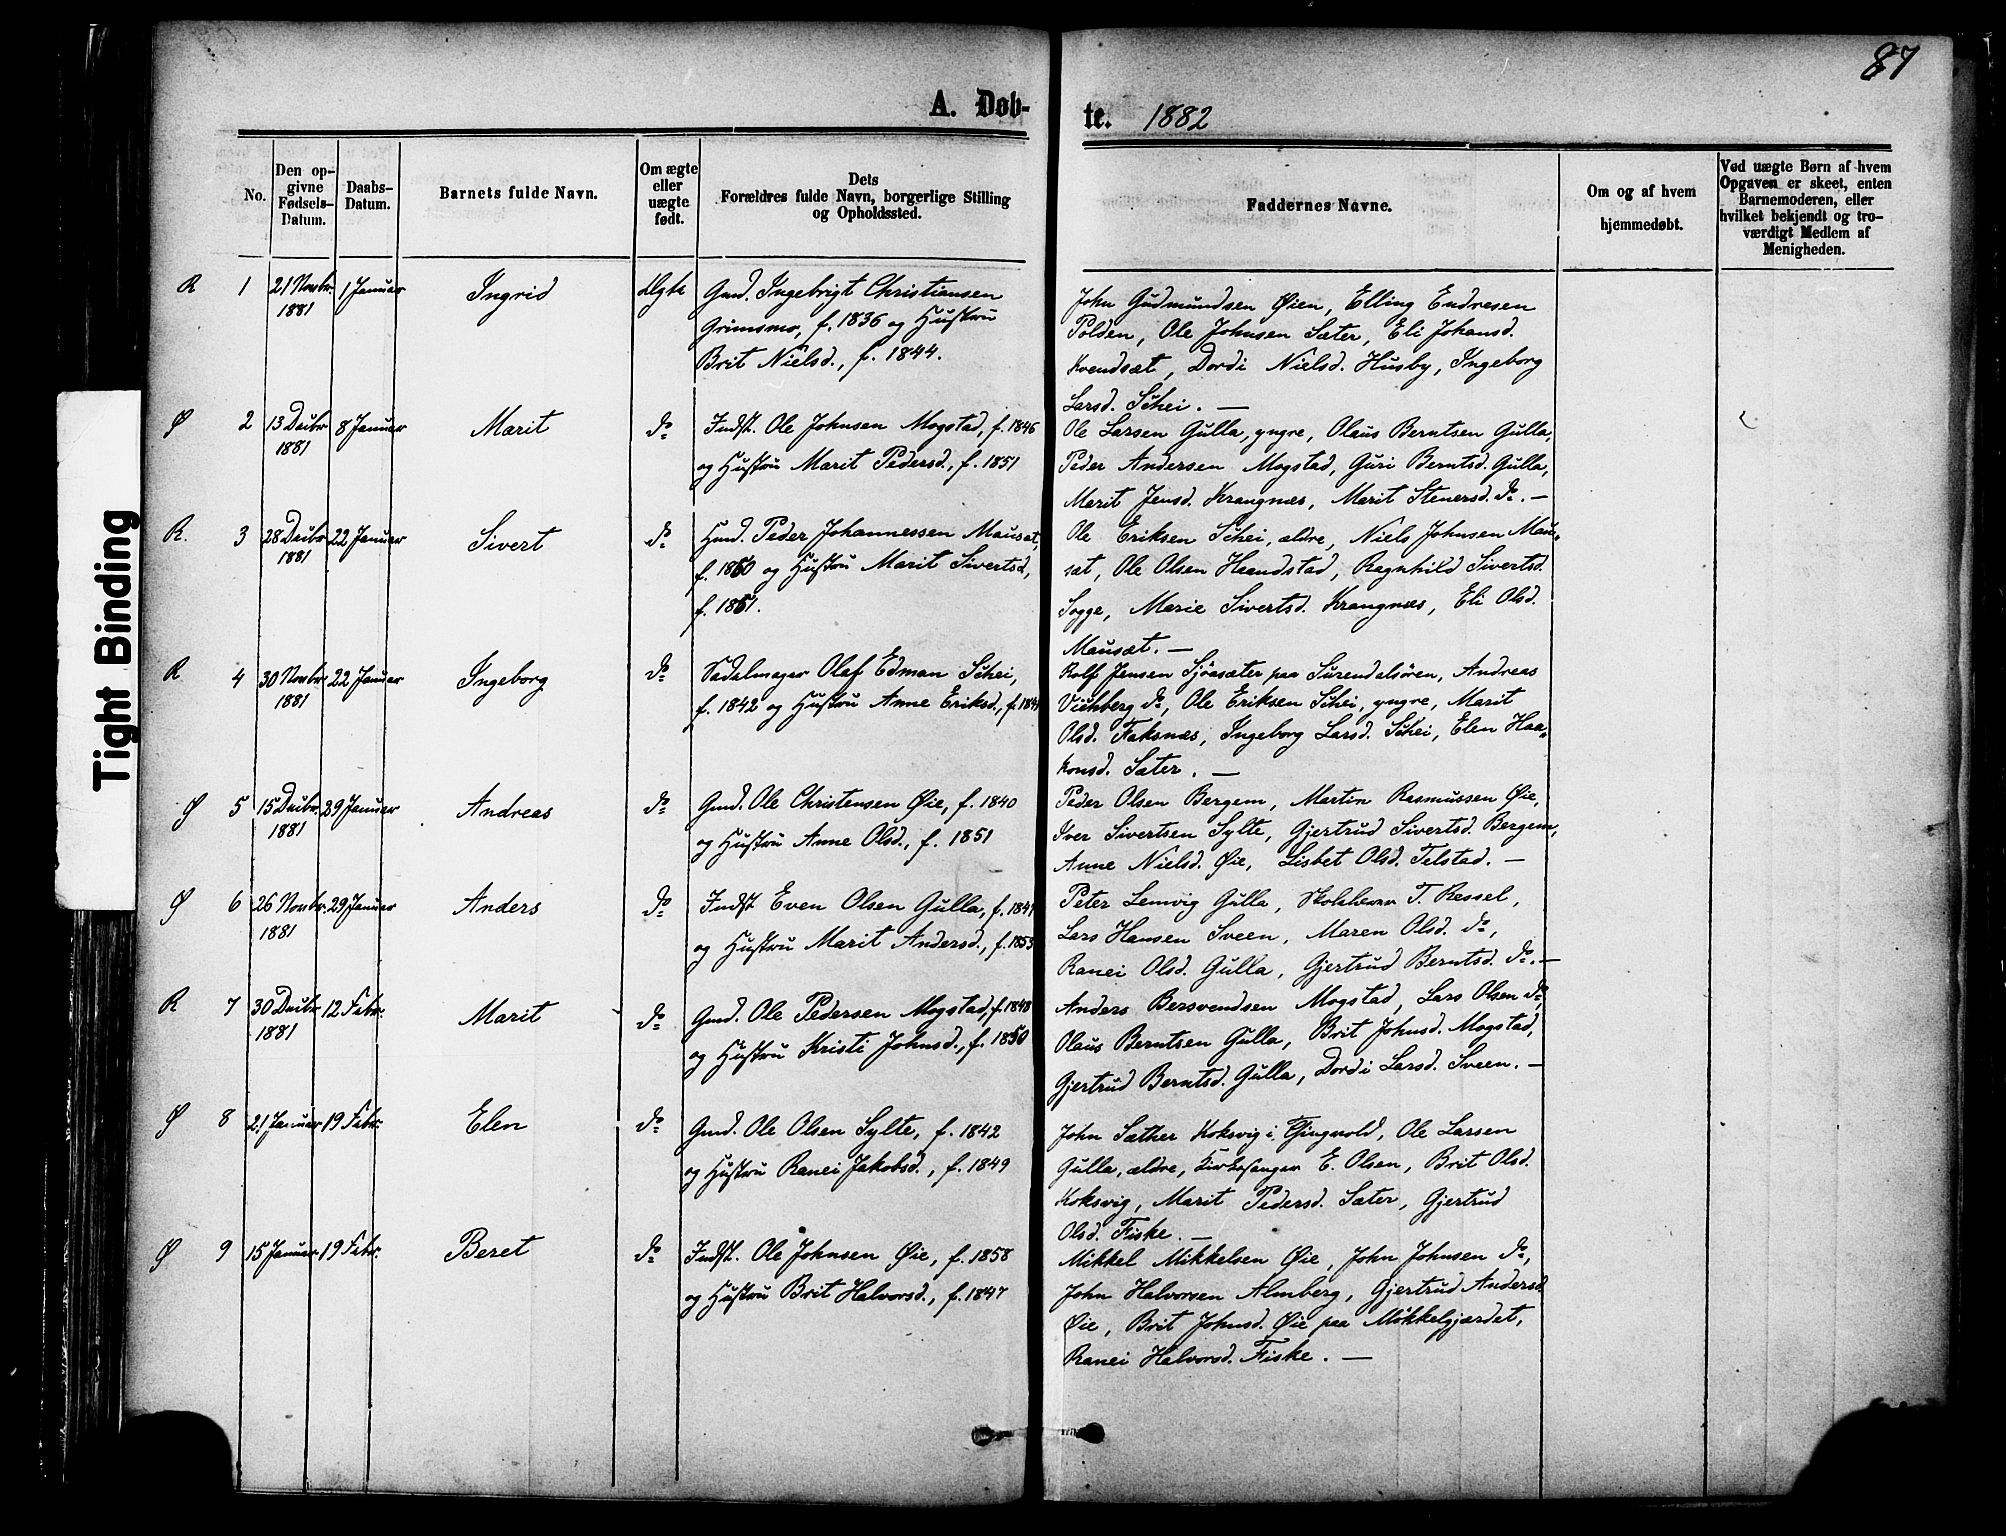 87
A. Døb-
te. 1882
No.
Den op-
givne
Fødsels-
Datum.
Daabs-
Datum.
Barnets fulde Navn.
Om ægte
eller
uægte
født.
Dets
Forældres fulde Navn, borgerlige Stilling
og Opholdssted.
Faddernes Navne.
Om og af hvem
hjemmedøbt.
Ved uægte Børn af hvem
Opgaven er skeet, enten
Barnemoderen, eller
hvilket bekjendt og tro-
værdigt Medlem af
Menigheden.
R 1 21 Novbr. 1 Januar Ingrid Ægte Gmd. Ingebrigt Christiansen
1881 Grimsmo, f. 1836 og Hustru
Brit Nielsd., f. 1844.
John Gudmundsen Øien, Elling Endresen
Polden, Ole Johnsen Sæter, Eli Johansd.
Kvendsæt, Dordi Nielsd. Husby, Ingeborg
Larsd. Schei. —
Ø 2 13 Decbr. 8 Januar Marit do Indst. Ole Johnsen Mogstad, f. 1846
1881 og Hustru Marit Pedersd., f. 1851
Ole Larsen Gulla, yngre, Olaus Berntsen Gulla,
Peder Andersen Mogstad, Guri Berntsd. Gulla,
Marit Jensd. Krangnæs, Marit Stenersd. do. —
R. 3 28 Decbr. 22 Januar Sivert do Gmd. Peder Johannessen Mausæt,
1881 f. 1850 og Hustru Marit Sivertsd.,
f. 1851.
Ole Eriksen Schei, ældre, Niels Johnsen Mau-
sæt, Ole Olsen Haandstad, Ragnhild Sivertsd.
Sogge, Marie Sivertsd. Krangnæs, Eli Olsd.
Mausæt. —
R 4 30 Novbr. 22 Januar Ingeborg do Sadelmager Olaf Edman Schei,
1881 f. 1842 og Hustru Anne Eriksd., f.
Rolf Jensen Sjøasæter paa Surendalsören, Andreas
do, Ole Eriksen Schei, yngre, Marit
Olsd. Faksnæs, Ingeborg Larsd. Schei, Elen Haa-
konsd. Sæter. —
Ø 5 15 Decbr. 29 Januar Andreas do Gmd. Ole Christensen Øie, f. 1840
1881 og Hustru Anne Olsd., f. 1851
Peder Olsen Bergem, Martin Rasmussen Øie,
Iver Sivertsen Sylte, Gjertrud Sivertsd. Bergem,
Anne Nielsd. Øie, Lisbet Olsd. Telstad. —
Ø 6 26 Novbr. 29 Januar Anders do Indst. Even Olsen Gulla, f.
1881 og Hustru Marit Andersd., f. 1853
Peter Lemvig Gulla, Skolelærer T. Ressel,
Lars Hansen Sveen, Maren Olsd. do,
Ranei Olsd. Gulla, Gjertrud Berntsd. do. —
R 7 30 Decbr. 12 Febr. Marit do Gmd. Ole Pedersen Mogstad, f. 1848
1881 og Hustru Kristi Johnsd., f. 1850
Anders Bersvendsen Mogstad, Lars Olsen do,
Olaus Berntsen Gulla, Brit Johnsd. Mogstad,
Gjertrud Berntsd. Gulla, Dordi Larsd. Sveen. —
Ø 8 21 Januar 19 Febr. Elen do Gmd. Ole Olsen Sylte, f. 1842
og Hustru Ranei Jakobsd., f. 1849
John Sæther Koksvig i Thingvold, Ole Larsen
Gulla, ældre, Kirkesanger E. Olsen, Brit Olsd.
Koksvig, Marit Pedersd. Sæter, Gjertrud
Olsd. Fiske. —
Ø 9 15 Januar 19 Febr. Beret do Indst. Ole Johnsen Øie, f. 1858
og Hustru Brit Halvorsd., f. 1847
Mikkel Mikkelsen Øie, John Johnsen do,
John Halvorsen Almberg, Gjertrud Andersd.
Øie, Brit Johnsd. Øie paa Mikkelgjærdet,
Ranei Halvorsd. Fiske. —
Tight Binding